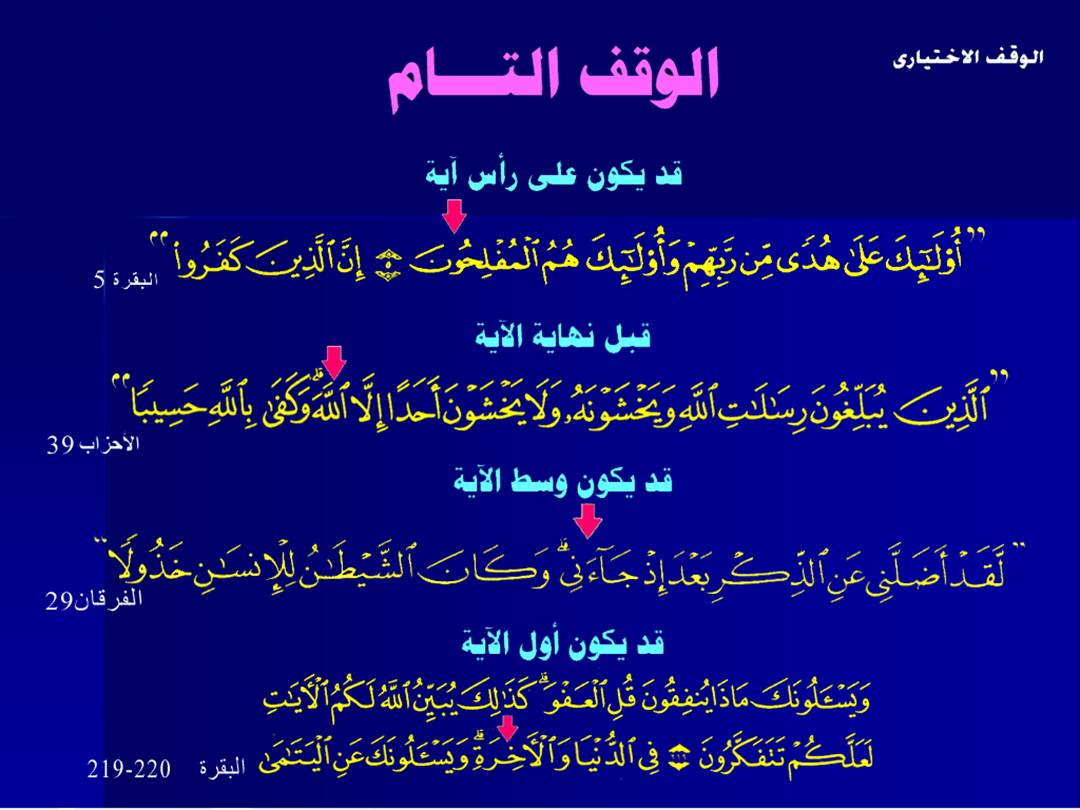 الوقف الاختيارى
الوقف التـــام
قد يكون على رأس آية
”أُوْلَـٰٓئِكَ عَلَىٰ هُدًى مِّن رَّبِّهِمْ وَأُوْلَـٰٓئِكَ هُمُ ٱلْمُفْلِحُونَ ۝ إِنَّ ٱلَّذِينَ كَفَرُواْ“
البقرة 5
قبل نهاية الآية
”ٱلَّذِينَ يُبَلِّغُونَ رِسَـٰلَـٰتِ ٱللَّهِ وَيَخْشَوْنَهُۥ وَلَا يَخْشَوْنَ أَحَدًا إِلَّا ٱللَّهَ ۗ وَكَفَىٰ بِٱللَّهِ حَسِيبًا“
الأحزاب 39
قد يكون وسط الآية
”لَّقَدْ أَضَلَّنِى عَنِ ٱلذِّكْرِ بَعْدَ إِذْ جَآءَنِى ۗ وَكَانَ ٱلشَّيْطَـٰنُ لِلْإِنسَـٰنِ خَذُولًا“
الفرقان29
قد يكون أول الآية
وَيَسْـَٔلُونَكَ مَاذَا يُنفِقُونَ قُلِ ٱلْعَفْوَ ۗ كَذَٰلِكَ يُبَيِّنُ ٱللَّهُ لَكُمُ ٱلْـَٔايَـٰتِ
لَعَلَّكُمْ تَتَفَكَّرُونَ ۝ فِى ٱلدُّنْيَا وَٱلْـَٔاخِرَةِ ۗ وَيَسْـَٔلُونَكَ عَنِ ٱلْيَتَـٰمَىٰ
البقرة 219-220